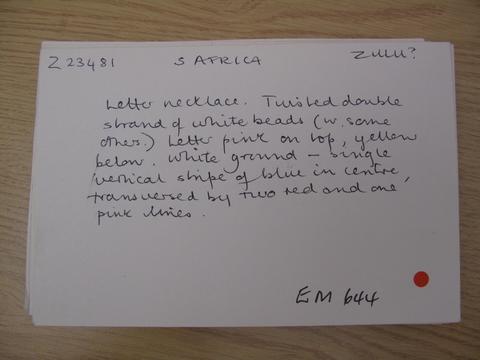 Z 23481 S AFRICA ZULU?
Letter necklace. Twisted double
strand of white beads (w. some
others.) Letter pink on top, yellow
below. White ground - single
vertical stripe of blue in centre,
transversed by two red and one
pink lines.
EM 644